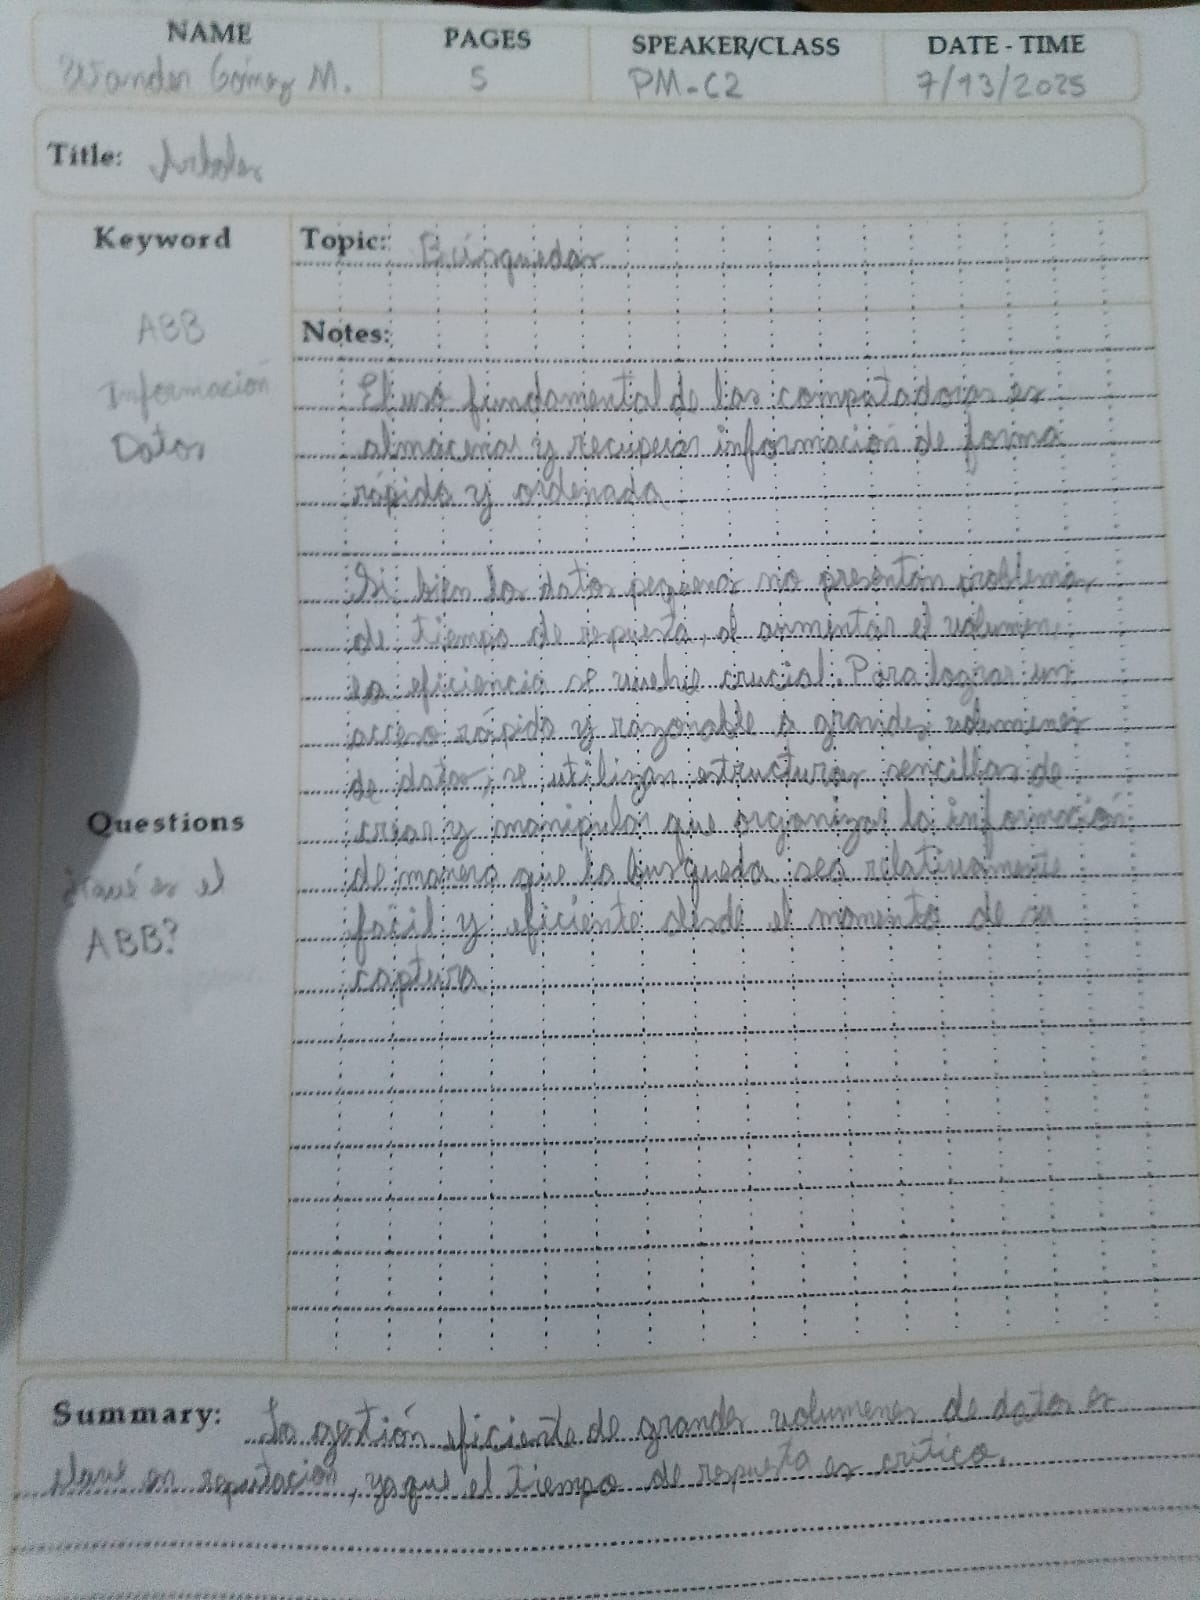 NAME PAGES SPEAKER/CLASS DATE - TIME
Wander Gómez M. 5 PM-C2 7/13/2025
Title: Arboles
Keyword
ABB
Información
Datos
Questions
¿Qué es el
ABB?
Topic: Búsquedas
Notes:
El uso fundamental de las computadoras es
almacenar y recuperar información de forma
rápida y ordenada
Si bien los datos pequeños no presentan problemas
de tiempo de repuesta, al aumentar el volumen,
la eficiencia se vuelve crucial. Para lograr un
acceso rápido y razonable a grandes volumenes
de datos, se utilizan estructuras sencillas de
crear y manipular que organizan la información
de manera que la busqueda sea relativamente
fácil y eficiente desde el momento de su
captura.
Summary: La gestión eficiente de grandes volumenes de datos es
clave en, ya que el tiempo de respuesta es critico.